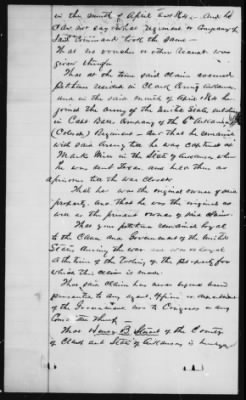 in the month of April 1864 - And he
can not say what regiment or Company of
said Command took the same -
That no voucher or other receipt was
given therefor
That at the time said claim accrued
Petitioner resided in Clark County Arkansas
and in the said month of April 1864 he
joined the Army of the United States
in Company of the 6th Arkansas
(Colored) Regiment - And that he remained
with said Army till he was captured at
Marks Mill in the State of Arkansas when
he was sent to Texas and held there as
a prisoner till the war closed
That he was the original owner of said
property. And that he was the original as
well as the present owner of said claim.
That your petitioner remained loyal
to the Cause and Government of the United
States during the war and was so loyal
at the time of the taking of the property for
which this claim is made.
That said claim has never before been
presented to any agent, officer or department
of the Government nor to Congress or any
Committee thereof -
That Henry B. of the County
of Clark and State of Arkansas is hereby